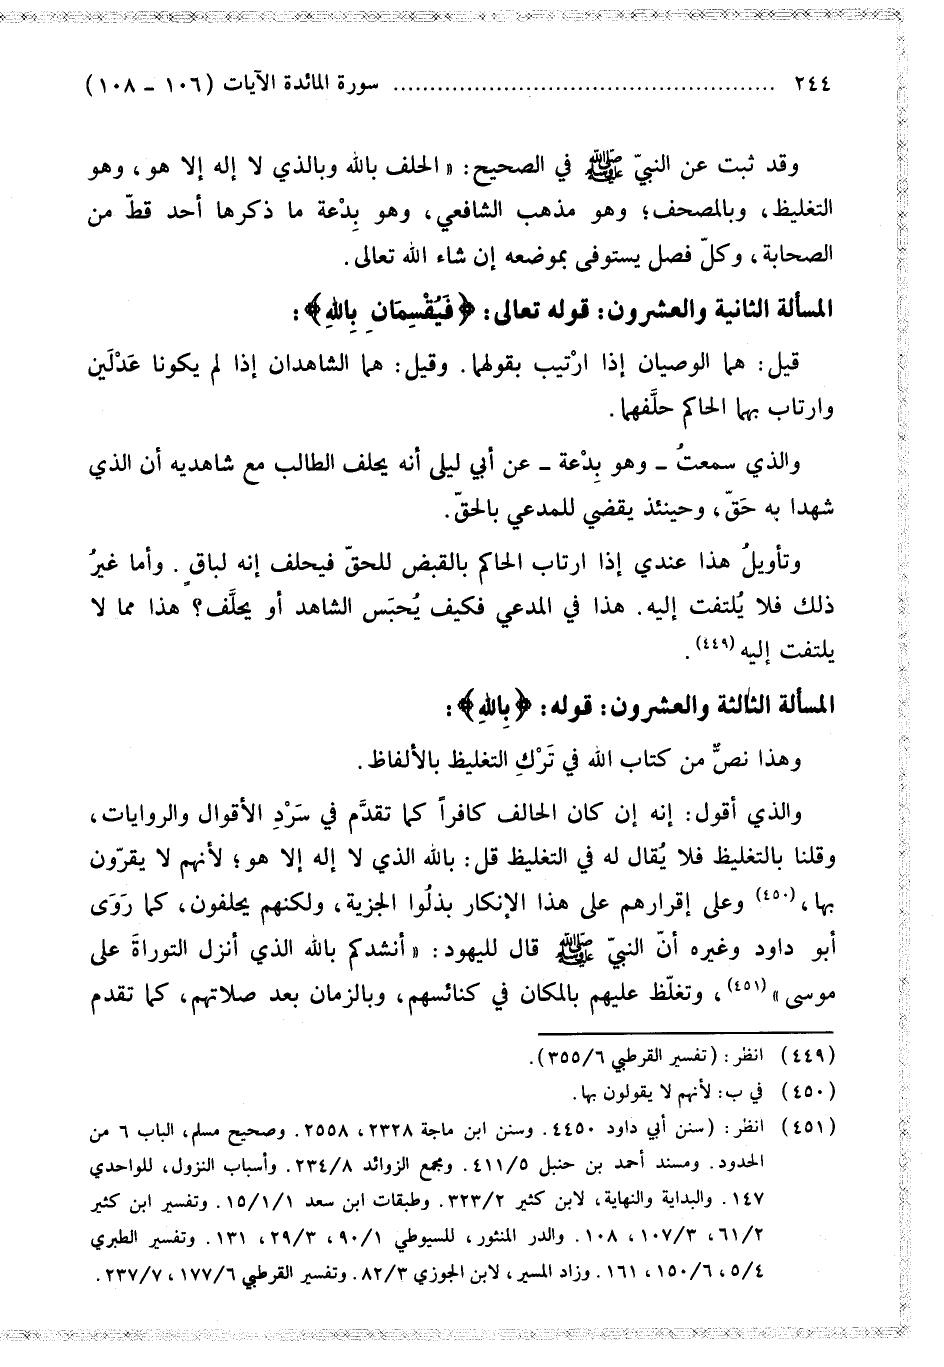 ٢٤٤ ................................................ سورة المائدة الآيات (١٠٦ - ١٠٨)
وقد ثبت عن النبيّ ﷺ في الصحيح: «الحلف بالله وبالذي لا إله إلا هو، وهو
التغليظ، وبالمصحف؛ وهو مذهب الشافعي، وهو بِدْعة ما ذكرها أحد قطّ من
الصحابة، وكلّ فصل يستوفى بموضعه إن شاء الله تعالى.
المسألة الثانية والعشرون: قوله تعالى: ﴿فَيُقْسِمَانِ بِاللهِ﴾:
قيل: هما الوصيان إذا ارْتيب بقولهما. وقيل: هما الشاهدان إذا لم يكونا عَدْلَين
وارتاب بهما الحاكم حلَّفهما.
والذي سمعتُ - وهو بِدْعة - عن أبي ليلى أنه يحلف الطالب مع شاهديه أن الذي
شهدا به حَقّ، وحينئذ يقضي للمدعي بالحقّ.
وتأويلُ هذا عندي إذا ارتاب الحاكم بالقبض للحقّ فيحلف إنه لباقٍ. وأما غيرُ
ذلك فلا يُلتفت إليه. هذا في المدعي فكيف يُحبَس الشاهد أو يحلَّف؟ هذا مما لا
يلتفت إليه (٤٤٩).
المسألة الثالثة والعشرون: قوله: ﴿بِاللهِ﴾:
وهذا نصٌّ من كتاب الله في تَرْكِ التغليظ بالألفاظ.
والذي أقول: إنه إن كان الحالف كافراً كما تقدَّم في سَرْدِ الأقوال والروايات،
وقلنا بالتغليظ فلا يُقال له في التغليظ قل: بالله الذي لا إله إلا هو؛ لأنهم لا يقرّون
بها، (٤٥٠) وعلى إقرارهم على هذا الإنكار بذلُوا الجزية، ولكنهم يحلفون، كما رَوَى
أبو داود وغيره أنّ النبيّ ﷺ قال لليهود: «أنشدكم بالله الذي أنزل التوراةَ على
موسى» (٤٥١)، وتغلّظ عليهم بالمكان في كنائسهم، وبالزمان بعد صلاتهم، كما تقدم
(٤٤٩) انظر: (تفسير القرطبي ٣٥٥/٦).
(٤٥٠) في ب: لأنهم لا يقولون بها.
(٤٥١) انظر: (سنن أبي داود ٤٤٥٠. وسنن ابن ماجة ٢٣٢٨، ٢٥٥٨. وصحيح مسلم، الباب ٦ من
الحدود. ومسند أحمد بن حنبل ٤١١/٥. ومجمع الزوائد ٢٣٤/٨. وأسباب النزول، للواحدي
١٤٧. والبداية والنهاية، لابن كثير ٣٢٣/٢. وطبقات ابن سعد ١٥/١/١. وتفسير ابن كثير
٦١/٢، ١٠٧/٣، ١٠٨. والدر المنثور، للسيوطي ٩٠/١، ٢٩/٣، ١٣١. وتفسير الطبري
٥/٤، ١٥٠/٦، ١٦١. وزاد المسير، لابن الجوزي ٨٢/٣. وتفسير القرطبي ١٧٧/٦، ٢٣٧/٧.